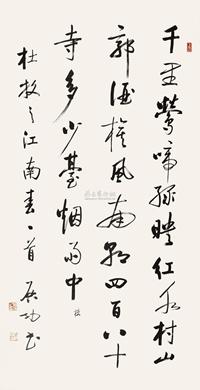 千里鶯啼綠映紅水村山
郭酒旗風南朝四百八十
寺多少臺烟雨中 樓
杜牧之江南春一首 启功書